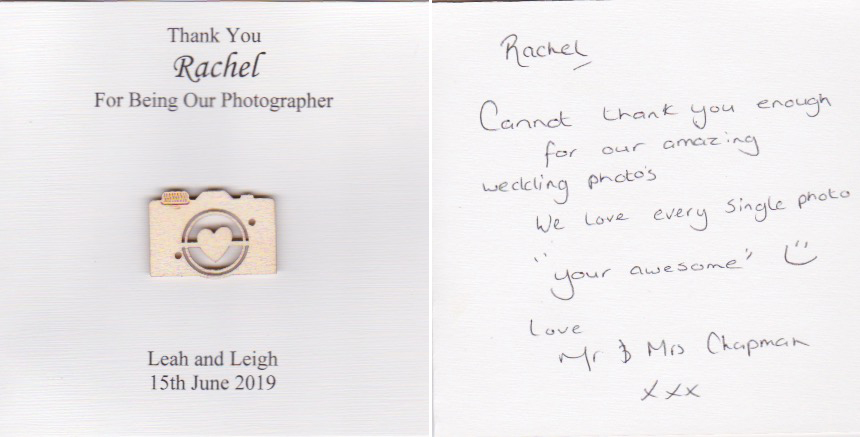 Thank You
Rachel
For Being Our Photographer
Leah and Leigh
15th June 2019
Rachel
Cannot thank you enough
for our amazing
wedding photo's
We love every single photo
"your awesome"
Love
Mr & Mrs Chapman
xxx